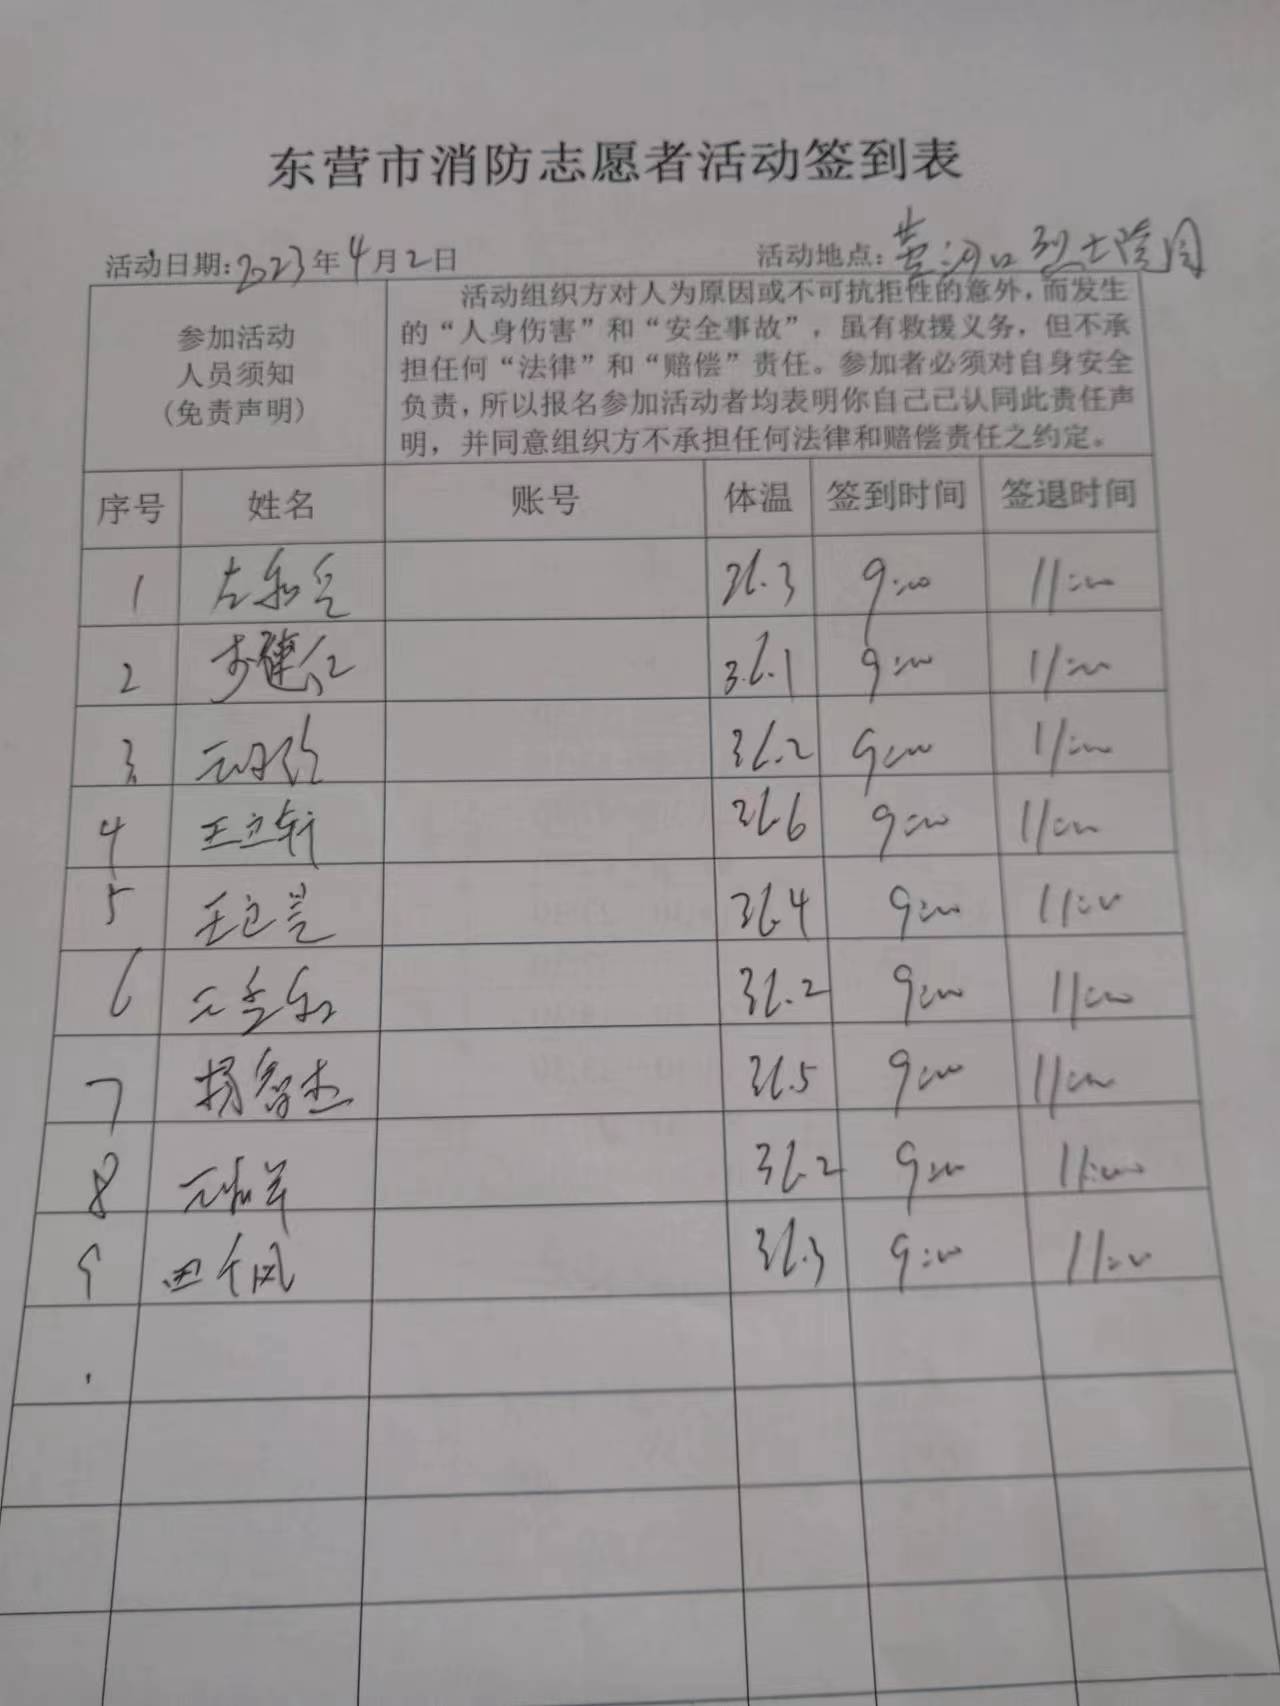 东营市消防志愿者活动签到表
活动日期:2023年4月2日 活动地点:黄河口烈士陵园
参加活动
人员须知
(免责声明)
活动组织方对人为原因或不可抗拒性的意外,而发生
的“人身伤害”和“安全事故”,虽有救援义务,但不承
担任何“法律”和“赔偿”责任。参加者必须对自身安全
负责,所以报名参加活动者均表明你自己已认同此责任声
明,并同意组织方不承担任何法律和赔偿责任之约定。
序号 姓名 账号 体温 签到时间 签退时间
1 36.3 9:00 11:00
2 36.1 9:00 11:00
3 36.2 9:00 11:00
4 王立轩 36.6 9:00 11:00
5 36.4 9:00 11:00
6 36.2 9:00 11:00
7 杨智杰 36.5 9:00 11:00
8 36.2 9:00 11:00
9 田千风 36.3 9:00 11:00